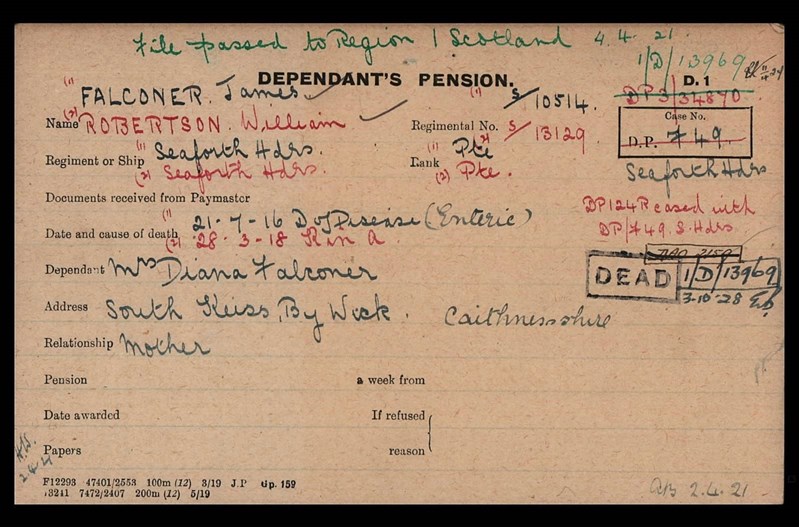 File passed to Region 1 Scotland 4.4.21.
1/D/13969
DEPENDANT'S PENSION. D.1
(1) FALCONER. James (1) S/10514. DP3/34870.
Name (2) ROBERTSON. William Regimental No. (2) S/13129
Case No.
D.P. 749.
Regiment or Ship (1) Seaforth Hdrs. Rank (1) Pte
(2) Seaforth Hdrs. (2) Pte.
Seaforth Hdrs
Documents received from Paymaster
DP124R cased with
DP/749. S. Hdrs.
Date and cause of death (1) 21-7-16 D of Disease (Enteric)
(2) 28-3-18 K in A.
Dependant Mrs Diana Falconer
DEAD 1/D/13969
3-10-28
Address South Keiss, By Wick. Caithnessshire
Relationship Mother
Pension a week from
Date awarded If refused
Papers reason
F12293 47401/2553 100m (12) 3/19 J.P Gp. 159
13241 7472/2407 200m (12) 5/19
2.4.21